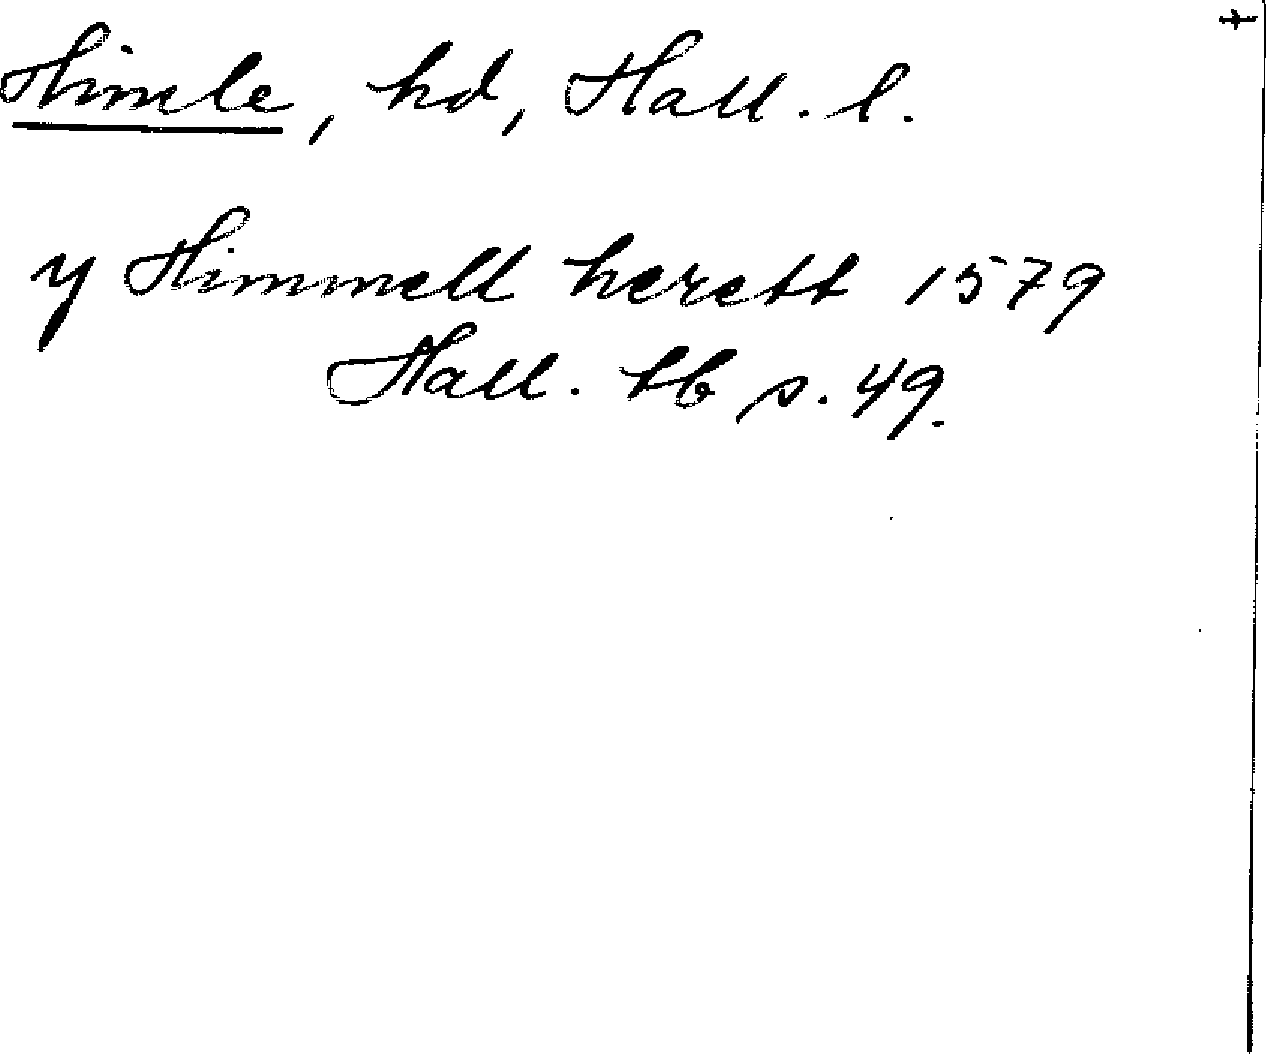 Himle, hd, Hall. l.
y Himmell herett 1579
Hall. tb s. 49.